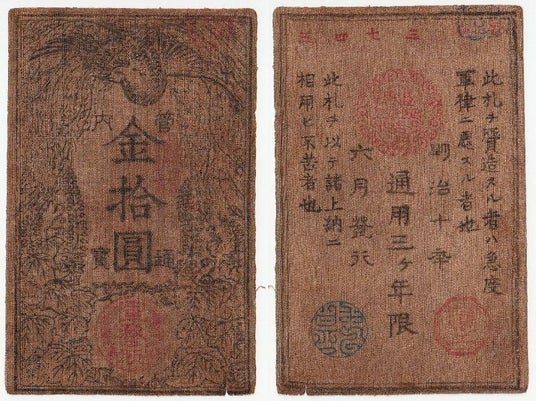 管内
金拾圓
通寶
此札ヲ贋造スル者ハ急度
軍律ニ處スル者也
明治十年
六月發行
通用三ヶ年限
此札ヲ以テ諸上納ニ
相用ヒ不苦者也